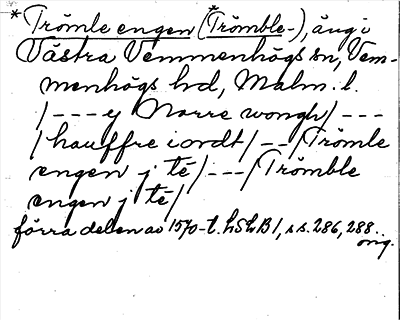 *Trömle engen (*Trömble-), äng i
Västra Vemmenhögs sn, Vem-
menhögs hd, Malm. l.
/---ej Norre wongh/---
/hauffre iordt/--/Trömle
engen j té/---/Trömble
engen j té/
förra delen av 1570-t. LSLB1, s s. 286, 288.
orig.